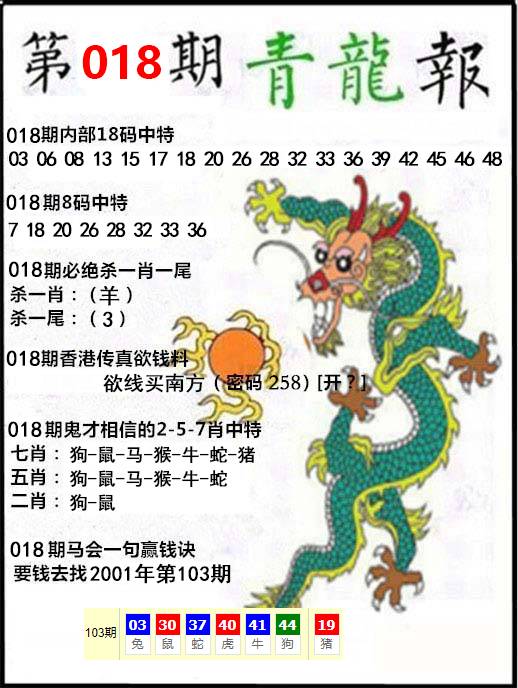 第018期 青龍報
018期内部18码中特
03 06 08 13 15 17 18 20 26 28 32 33 36 39 42 45 46 48
018期8码中特
7 18 20 26 28 32 33 36
018期必绝杀一肖一尾
杀一肖：（羊）
杀一尾：（3）
018期香港传真欲钱料
欲线买南方（密码 258）[开？]
018期鬼才相信的2-5-7肖中特
七肖：狗-鼠-马-猴-牛-蛇-猪
五肖：狗-鼠-马-猴-牛-蛇
二肖：狗-鼠
018期马会一句赢钱诀
要钱去找2001年第103期
103期 03 30 37 40 41 44 19
兔 鼠 蛇 虎 牛 狗 猪